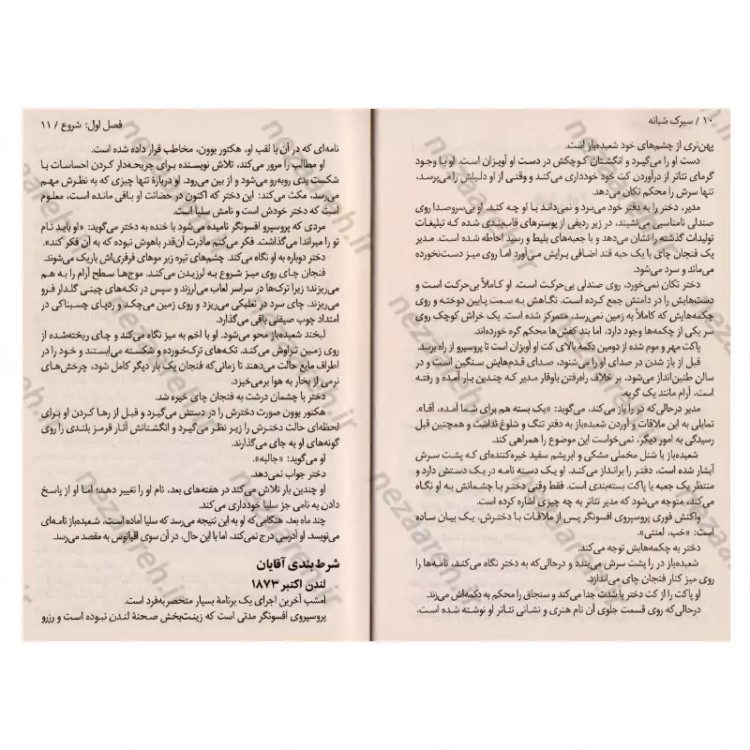 ۱۰ / سیرک شبانه
پهن‌تری از چشم‌های خود شعبده‌باز است.
دست او را می‌گیرد و انگشتان کوچکش در دست او آویزان است. او با وجود
گرمای تئاتر از درآوردن کت خود خودداری می‌کند و وقتی از او دلیلش را می‌پرسد،
تنها سرش را محکم تکان می‌دهد.
مدیر، دختر را به دفتر خود می‌برد و نمی‌داند با او چه کند. او بی‌سروصدا روی
صندلی نامناسبی می‌نشیند، در زیر ردیفی از پوسترهای قاب‌بندی شده که تبلیغات
تولیدات گذشته را نشان می‌دهد و با جعبه‌های بلیط و رسید احاطه شده است. مدیر
یک فنجان چای با یک حبه قند اضافی برایش می‌آورد اما روی میز دست‌نخورده
می‌ماند و سرد می‌شود.
دختر تکان نمی‌خورد، روی صندلی بی‌حرکت است. او کاملاً بی‌حرکت است و
دست‌هایش را در دامنش جمع کرده است. نگاهش به سمت پایین دوخته و روی
چکمه‌هایش که کاملاً به زمین نمی‌رسد، متمرکز شده است. یک خراش کوچک روی
سر یکی از چکمه‌ها وجود دارد، اما بند کفش‌ها محکم گره خورده‌اند.
پاکت مهر و موم شده از دومین دکمه بالای کت او آویزان است تا پروسپرو از راه برسد.
قبل از باز شدن در صدای او را می‌شنود، صدای قدم‌هایش سنگین است و در
سالن طنین‌انداز می‌شود، بر خلاف راه‌رفتن باوقار مدیر که چندین بار آمده و رفته
است، آرام مانند یک گربه.
مدیر درحالی‌که در را باز می‌کند، می‌گوید: «یک بسته هم برای شما آمده، آقا».
تمایلی به این ملاقات و آوردن شعبده‌باز به دفتر تنگ و شلوغ نداشت و همچنین قبل
رسیدگی به امور دیگر، نمی‌خواست این موضوع را همراهی کند.
شعبده‌باز با شنل مخملی مشکی و ابریشم سفید خیره‌کننده‌ای که پشت سرش
آبشار شده است، دفتر را برانداز می‌کند. او یک دسته نامه در یک دستش دارد و
منتظر یک جعبه یا پاکت بسته‌بندی است. فقط وقتی دختر با چشمانش به او نگاه
می‌کند، متوجه می‌شود که مدیر تئاتر به چه چیزی اشاره کرده است.
واکنش فوری پروسپروی افسونگر پس از ملاقات با دخترش، یک بیان ساده
است: «خب، لعنتی».
دختر به چکمه‌هایش توجه می‌کند.
شعبده‌باز در را پشت سرش می‌بندد و درحالی‌که به دختر نگاه می‌کند، نامه‌ها را
روی میز کنار فنجان چای می‌اندازد.
او پاکت را از کت دختر با شدت جدا می‌کند و سنجاق را محکم به دکمه‌اش می‌زند.
درحالی‌که روی قسمت جلوی آن نام هنری و نشانی تئاتر او نوشته شده است،
فصل اول: شروع / ۱۱
نامه‌ای که در آن با لقب او، هکتور بوون، مخاطب قرار داده شده است.
او مطالب را مرور می‌کند، تلاش نویسنده برای جریحه‌دار کردن احساسات با
شکست بدی روبه‌رو می‌شود و از بین می‌رود. او دربارهٔ تنها چیزی که به نظرش مهم
می‌رسد، مکث می‌کند: این دختر که اکنون در حضانت او باقی مانده است، معلوم
است که دختر خودش است و نامش سلیا است.
مردی که پروسپرو افسونگر نامیده می‌شود با خنده به دختر می‌گوید: «او باید نام
تو را میراندا می‌گذاشت. فکر می‌کنم مادرت آن‌قدر باهوش نبوده که به آن فکر کند».
دختر دوباره به او نگاه می‌کند. چشم‌های تیره زیر موهای فرفری‌اش باریک می‌شوند.
فنجان چای روی میز شروع به لرزیدن می‌کند. موج‌ها سطح آرام را به هم
می‌ریزند؛ زیرا ترک‌ها در سراسر لعاب می‌لرزند و سپس در تکه‌های چینی گلدار فرو
می‌ریزند. چای سرد در نعلبکی می‌ریزد و روی زمین می‌چکد و ردپای چسبناکی در
امتداد چوب صیقلی باقی می‌گذارد.
لبخند شعبده‌باز محو می‌شود. او با اخم به میز نگاه می‌کند و چای ریخته‌شده از
روی زمین تراوش می‌کند. تکه‌های ترک‌خورده و شکسته می‌ایستند و خود را در
اطراف مایع حالت می‌دهند تا زمانی‌که فنجان یک بار دیگر کامل شود، چرخش‌های
نرمی از بخار به هوا برمی‌خیزد.
دختر با چشمان درشت به فنجان چای خیره شد.
هکتور بوون صورت دخترش را در دستش می‌گیرد و قبل از رها کردن او برای
لحظه‌ای حالت دخترش را زیر نظر می‌گیرد و انگشتانش آثار قرمز بلندی را روی
گونه‌های او به جای می‌گذارند.
او می‌گوید: «جالبه».
دختر جواب نمی‌دهد.
او چندین بار تلاش می‌کند در هفته‌های بعد، نام او را تغییر دهد؛ اما او از پاسخ
دادن به نامی جز سلیا خودداری می‌کند.
چند ماه بعد، هنگامی‌که او به این نتیجه می‌رسد که سلیا آماده است، شعبده‌باز نامه‌ای
می‌نویسد. او آدرسی درج نمی‌کند، اما با این حال، در آن سوی اقیانوس به مقصد می‌رسد.
شرط‌بندی آقایان
لندن اکتبر ۱۸۷۳
امشب آخرین اجرای یک برنامهٔ بسیار منحصربه‌فرد است.
پروسپروی افسونگر مدتی است که زینت‌بخش صحنهٔ لندن نبوده است و رزرو